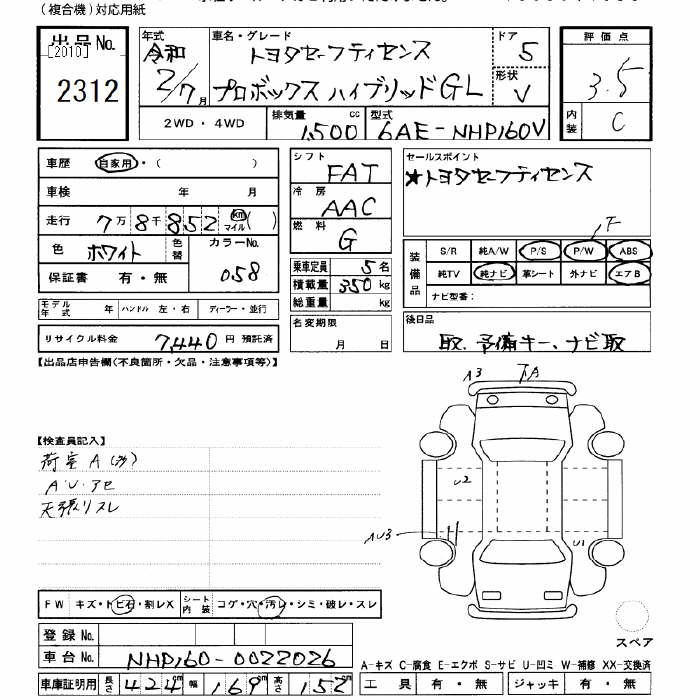 (複合機)対応用紙
出品No.
[2010]
2312
年式
令和
2/7月
車名・グレード
トヨタセーフティセンス
プロボックス ハイブリッドGL
ドア
5
形状
V
評価点
3.5
内装
C
2WD・4WD
排気量
1,500 cc
型式
6AE-NHP160V
車歴 自家用・( )
車検 年 月
走行 7万8千852 km マイル ( )
色 ホワイト 色替
カラーNo.
058
保証書 有・無
モデル年式 年 ハンドル 左・右 ディーラー・並行
リサイクル料金 7,440 円 預託済
シフト
FAT
冷房
AAC
燃料
G
乗車定員 5名
積載量 350 kg
総重量 kg
名変期限
月 日
セールスポイント
★トヨタセーフティセンス
F
装備品
S/R 純A/W P/S P/W ABS
純TV 純ナビ 革シート 外ナビ エアB
ナビ型番:
後日品
取、予備キー、ナビ取
【出品店申告欄(不良箇所・欠品・注意事項等)】
【検査員記入】
荷室 A(汚)
A・U・アセ
天張リスレ
A3
A
U2
AU3
U1
スペア
FW キズ・トビ石・割レX シート内装 コゲ・穴・汚レ・シミ・破レ・スレ
登録No.
車台No. NHP160-0022026
車庫証明用 長さ 424cm 幅 169cm 高さ 152cm
A-キズ C-腐食 E-エクボ S-サビ U-凹ミ W-補修 XX-交換済
工具 有・無 ジャッキ 有・無